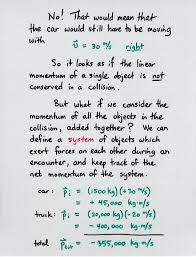 No! That would mean that
the car would still have to be moving
with v⃗ = 30 m/s right
So it looks as if the linear
momentum of a single object is not
conserved in a collision.
But what if we consider the
momentum of all the objects in the
collision, added together? We can
define a system of objects which
exert forces on each other during an
encounter, and keep track of the
net momentum of the system.
car: p⃗₁ = (1500 kg)(+30 m/s)
= + 45,000 kg·m/s
truck: p⃗₂ = (20,000 kg)(-20 m/s)
= - 400,000 kg·m/s
total p⃗tot = -355,000 kg·m/s